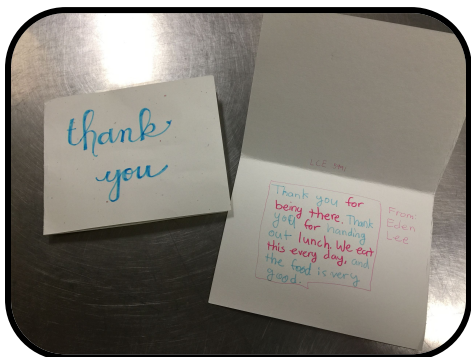 thank
you
Thank you for
being there. Thank
you for handing
out lunch. We eat
this every day, and
the food is very
good.
From:
Eden
Lee